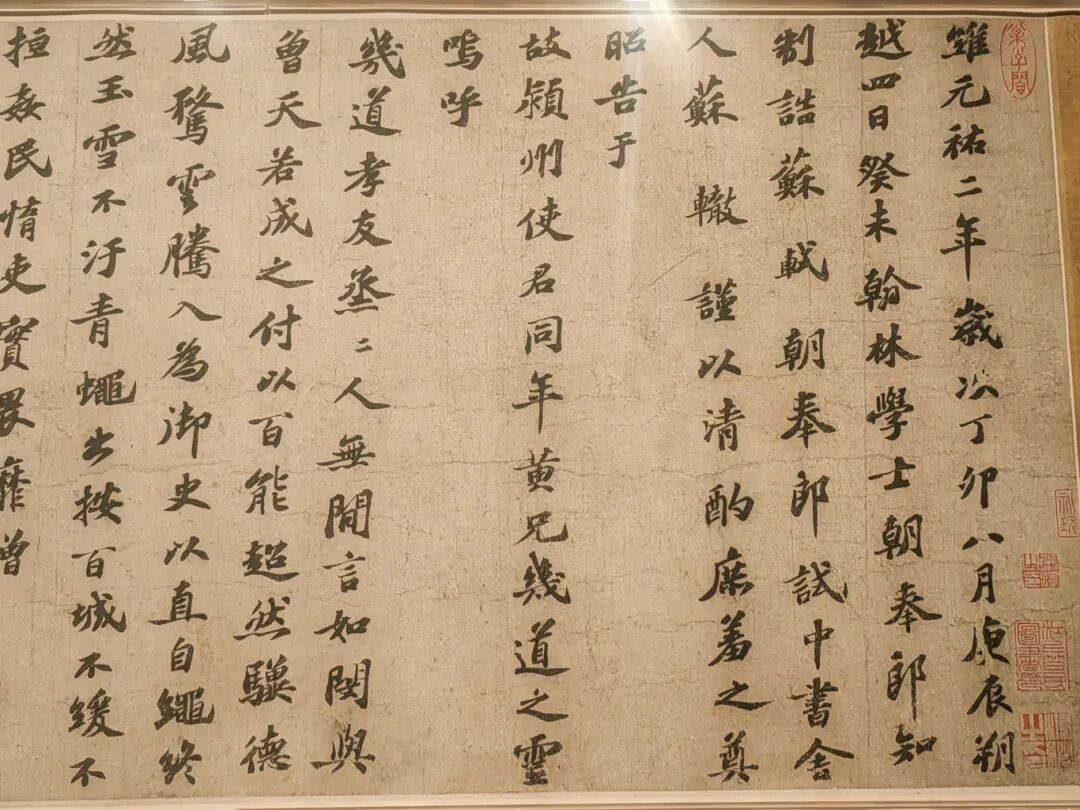 維元祐二年歲次丁卯八月庚辰朔
越四日癸未翰林學士朝奉郎知
制誥蘇軾朝奉郎試中書舍
人蘇轍謹以清酌庶羞之奠
昭告于
故潁州使君同年黃兄幾道之靈
嗚呼
幾道孝友烝〻人無閒言如閔與
曾天若成之付以百能超然驥德
風騖雲騰入為御史以直自繩終
然玉雪不汙青蠅出按百城不緩不
拒姦民惰吏實畏靡曾